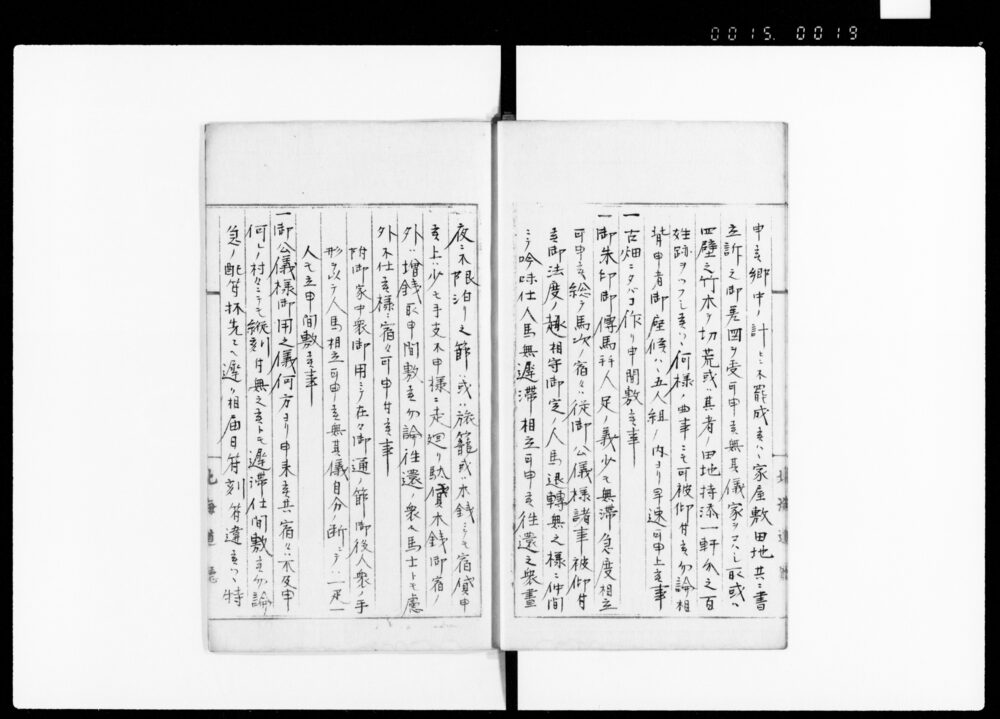 0015. 0019
申亥郷中ノ計ヒニ不罷成亥ハヽ家屋敷田地共ニ書
立訴之御差図ヲ受可申亥無其儀家ヲコハシ取或ハ
四壁之竹木ヲ切荒或ハ其者ノ田地持添一軒分之百
姓跡ヲツフシ亥ハヽ何様ノ曲事ニモ可被仰付亥勿論相
背申者御座候ハヽ五人組ノ内ヨリ早速可申上亥事
一古畑ニタバコ作リ申間敷亥事
一御朱印御傳馬并人足ノ義少モ無滞急度相立
可申亥総テ馬次ノ宿々ハ従御公儀様諸事被仰付
亥御法度ノ趣相守御定ノ人馬退轉無之様ニ仲間
ニテ吟味仕人馬無遅滞相立可申亥往還之衆晝
夜ニ不限泊リ之節ハ或ハ旅籠或ハ木銭ニテモ宿貸申
亥上ハ少モ手支不申様ニ走廻リ駄賃木銭御宿ノ
外ハ増銭取申間敷亥勿論往還ノ衆ヘ馬士トモ慮
外不仕亥様ニ宿々可申付亥事
附御家中衆御用ニテ在々御通ノ節御役人衆ノ手
形ヲ以テ人馬相立可申亥無其儀自分ノ断ニテハ一疋一
人モ立申間敷亥事
一御公儀様御用之儀何方ヨリ申来亥共宿々ハ不及申
何レノ村々ニテモ縦刻付無之亥トモ遅滞仕間敷亥勿論
急ノ配符抔先々ヘ遅ク相届日符刻符違亥ハヽ特
北海道廳